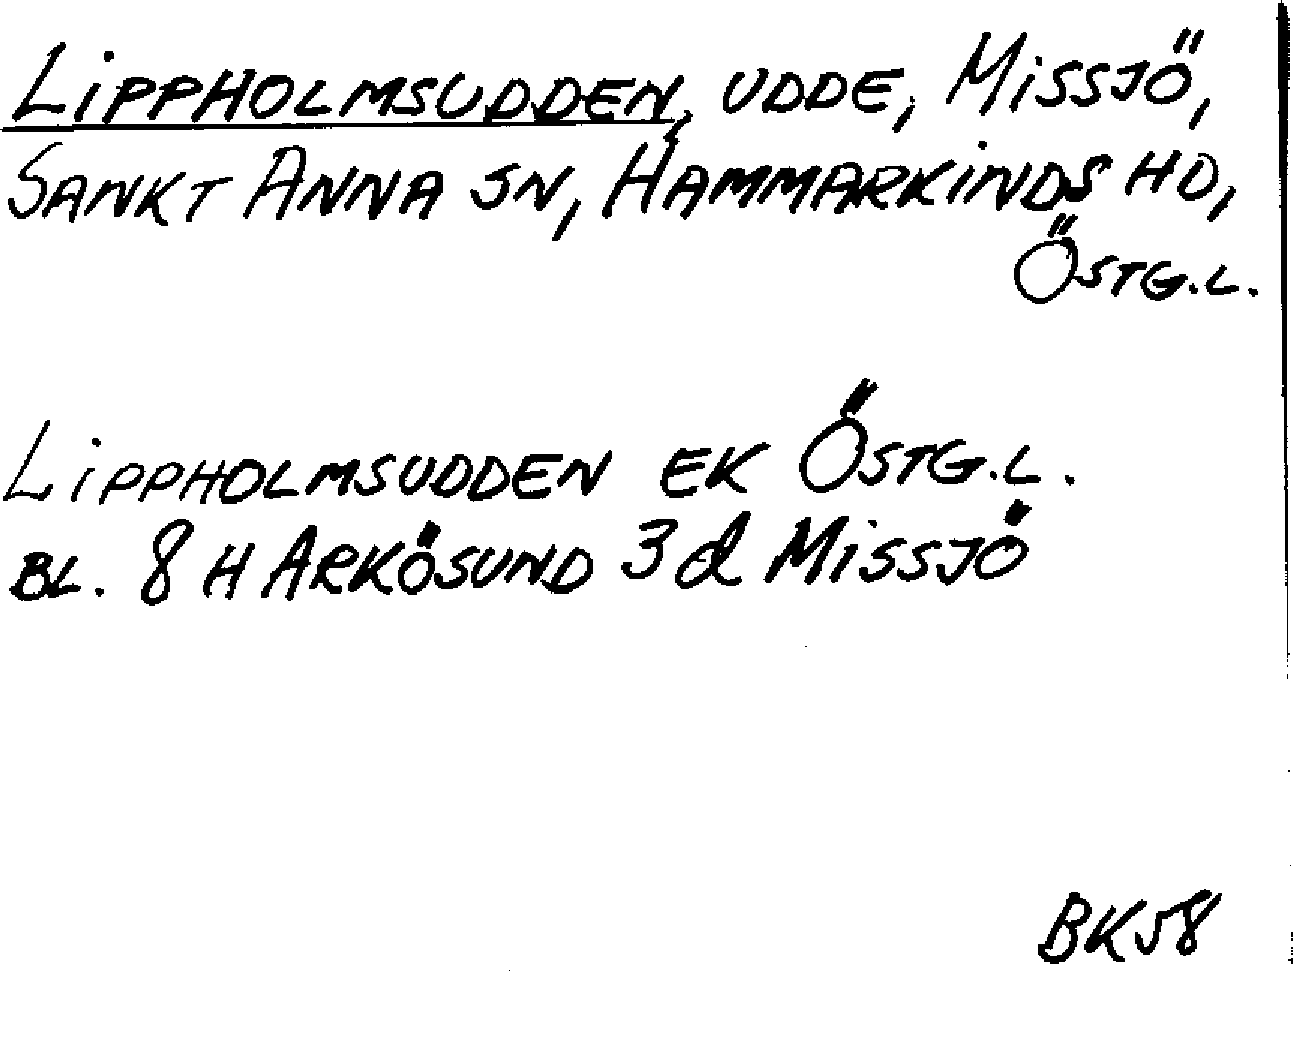 LIPPHOLMSUDDEN, UDDE, MISSJÖ,
SANKT ANNA SN, HAMMARKINDS HD,
ÖSTG.L.
LIPPHOLMSUDDEN EK ÖSTG.L.
BL. 8 H ARKÖSUND 3d MISSJÖ
BK58